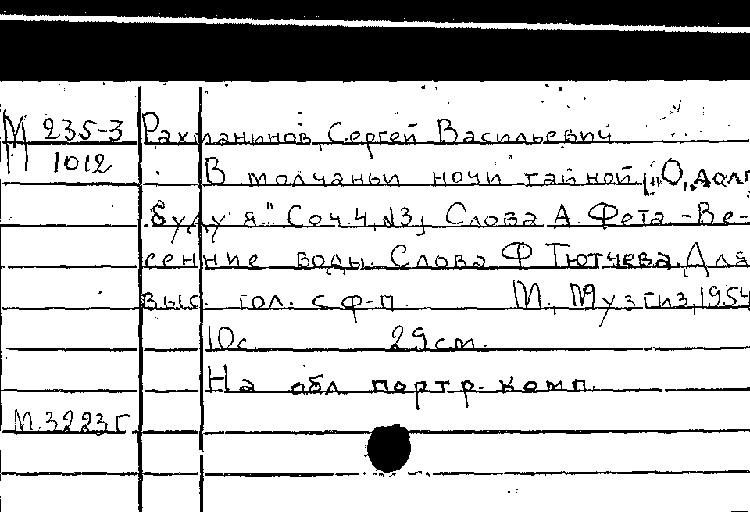 М 235-3 Рахманинов, Сергей Васильевич
П 1012 В молчаньи ночи тайной. („О, долг
буду я" Соч. 4, №3, Слова А. Фета - Ве-
сенние воды. Слова Ф Тютчева. Для
выс. гол. с ф-п М., Музгиз, 1954
10с. 29см.
На обл портр. комп.
М.3223г.